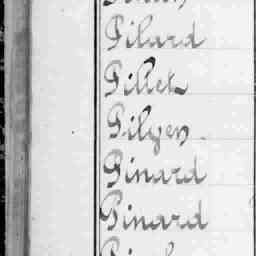 Pilard
Pillet
Pilyen
Pinard
Pinard